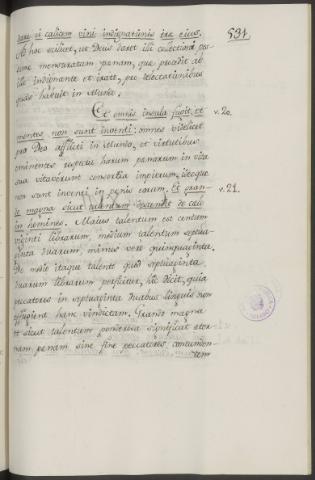 dare ei calicem vini indignationis irae ejus.
531.
Ad hoc scilicet, ut Deus daret illi
sume mensuratam penam, que procedit ab
illi indignante et irato, pro delectationibus
quas habuit in Mundo.
Et omnis insula fugit, et
v. 20.
montes non sunt inventi: omnes videlicet
pro Deo afflicti in Mundo, et virtutibus
eminentes respectu harum penarum in vita
sua vitaverunt consortia impiorum, ideoque
non sunt inventi in penis eorum. Et gran-
v. 21.
do magna sicut talentum descendit de celo
in homines. Maius talentum est centum
viginti librarum, medium talentum septua-
ginta duarum, minus vero quinquaginta.
De medio itaque talento quod septuaginta
duarum librarum perficitur, hic dicit, quia
peccatores in septuaginta duabus linguis non
effugient hanc vindictam. Grando magna
sicut talentum ponderosa significat eter-
nam penam sine fine peccatores contunden-
tem